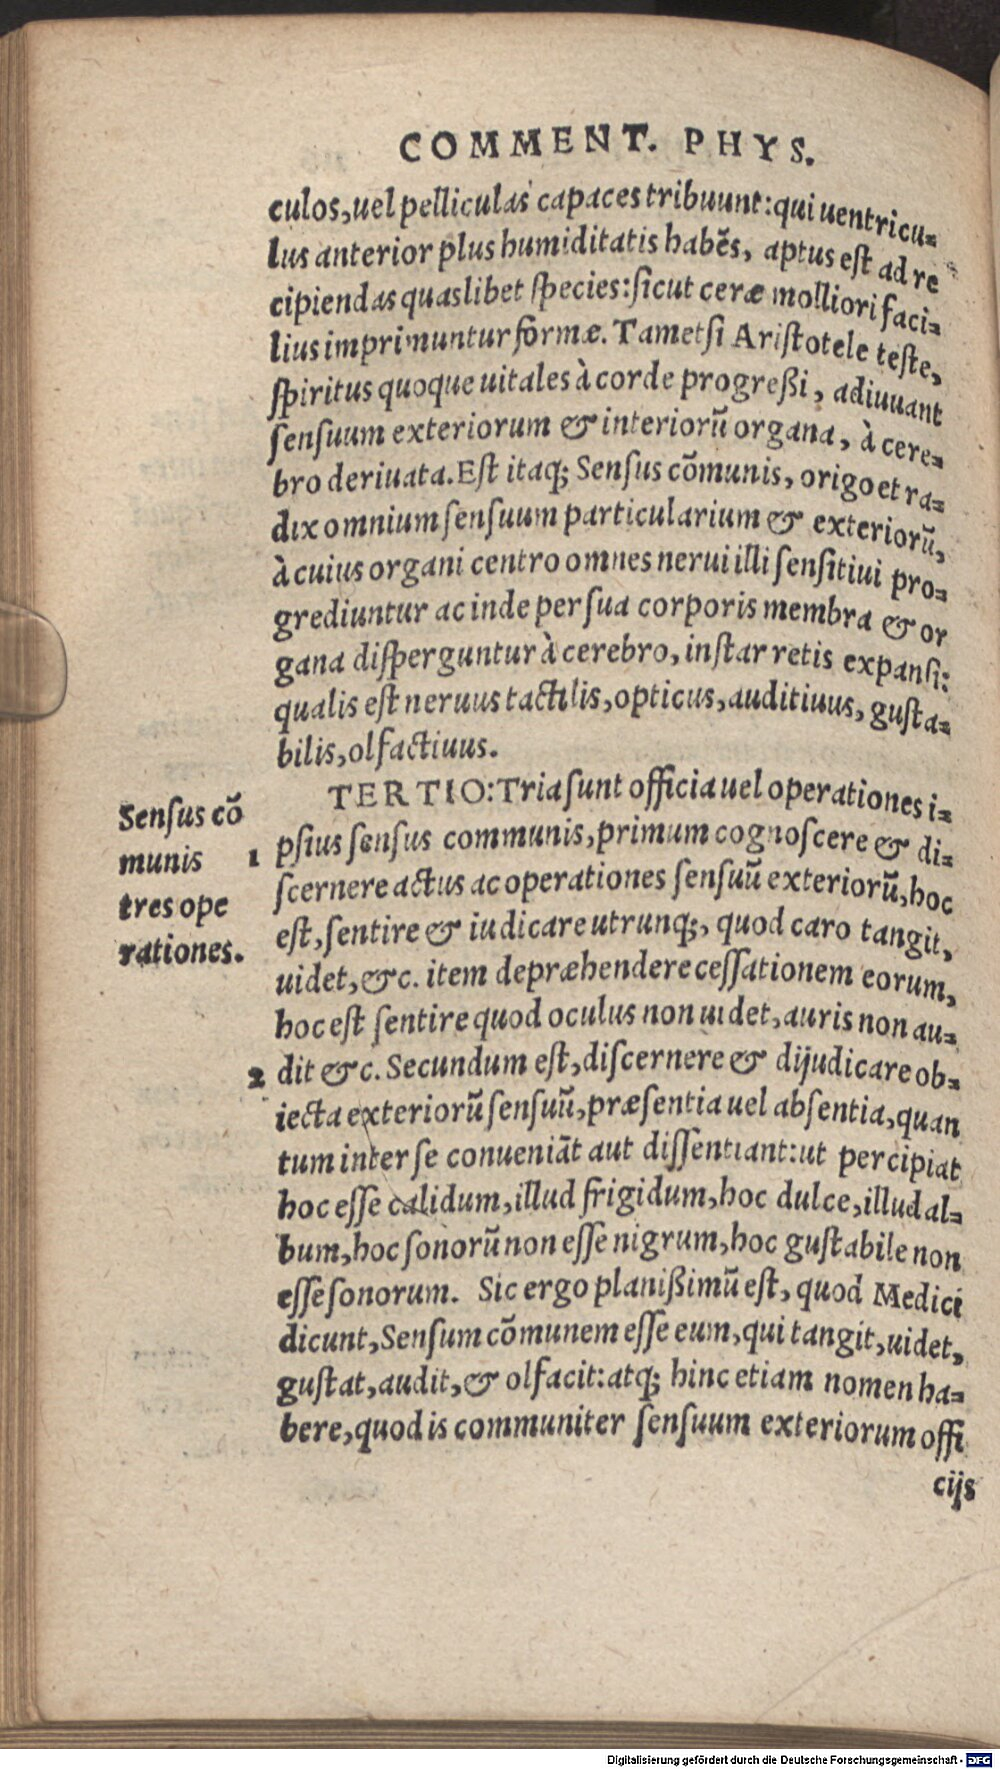 COMMENT. PHYS.
culos,uel pelliculas capaces tribuunt:qui uentricu-
lus anterior plus humiditatis habẽs, aptus est ad re
cipiendas quaslibet species:sicut ceræ molliori faci-
lius imprimuntur formæ. Tametsi Aristotele teste,
spiritus quoque uitales à corde progreßi, adiuuant
sensuum exteriorum & interiorũ organa, à cere-
bro deriuata. Est itaq; Sensus cõmunis, origo et ra-
dix omnium sensuum particularium & exteriorũ,
à cuius organi centro omnes nerui illi sensitiui pro-
grediuntur ac inde per sua corporis membra & or
gana disperguntur à cerebro, instar retis expansi:
qualis est neruus tactilis, opticus, auditiuus, gusta-
bilis, olfactiuus.
TERTIO: Tria sunt officia uel operationes i-
psius sensus communis, primum cognoscere & di-
scernere actus ac operationes sensuũ exteriorũ, hoc
est, sentire & iudicare utrunq;, quod caro tangit,
uidet, &c. item depræhendere cessationem eorum,
hoc est sentire quod oculus non uidet, auris non au-
dit &c. Secundum est, discernere & dijudicare ob-
iecta exteriorũ sensuũ, præsentia uel absentia, quan
tum inter se conueniãt aut dissentiant: ut percipiat
hoc esse calidum, illud frigidum, hoc dulce, illud al-
bum, hoc sonorũ non esse nigrum, hoc gustabile non
esse sonorum. Sic ergo planißimũ est, quod Medici
dicunt, Sensum cõmunem esse eum, qui tangit, uidet,
gustat, audit, & olfacit: atq; hinc etiam nomen ha-
bere, quod is communiter sensuum exteriorum offi
cijs
Sensus cõ
munis
tres ope
rationes.
1
2
Digitalisierung gefördert durch die Deutsche Forschungsgemeinschaft - DFG